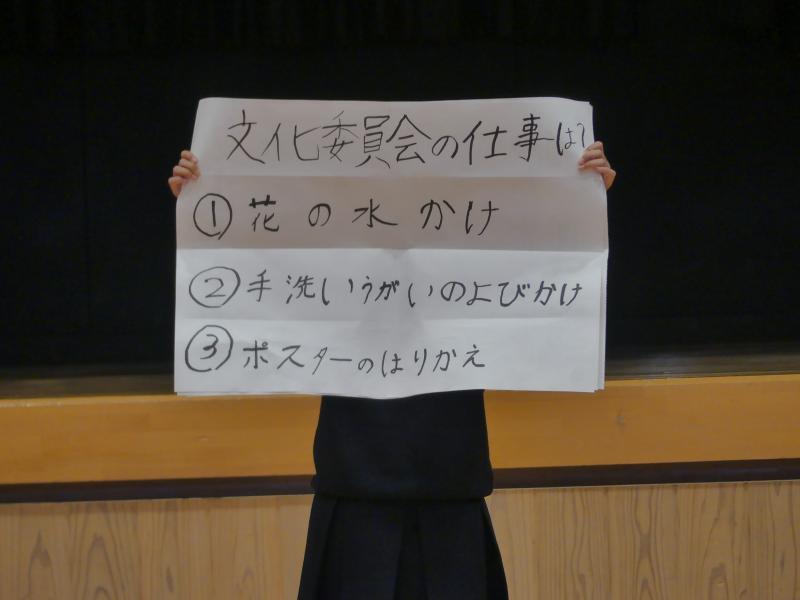 文化委員会の仕事は?
①花の水かけ
②手洗いうがいのよびかけ
③ポスターのはりかえ